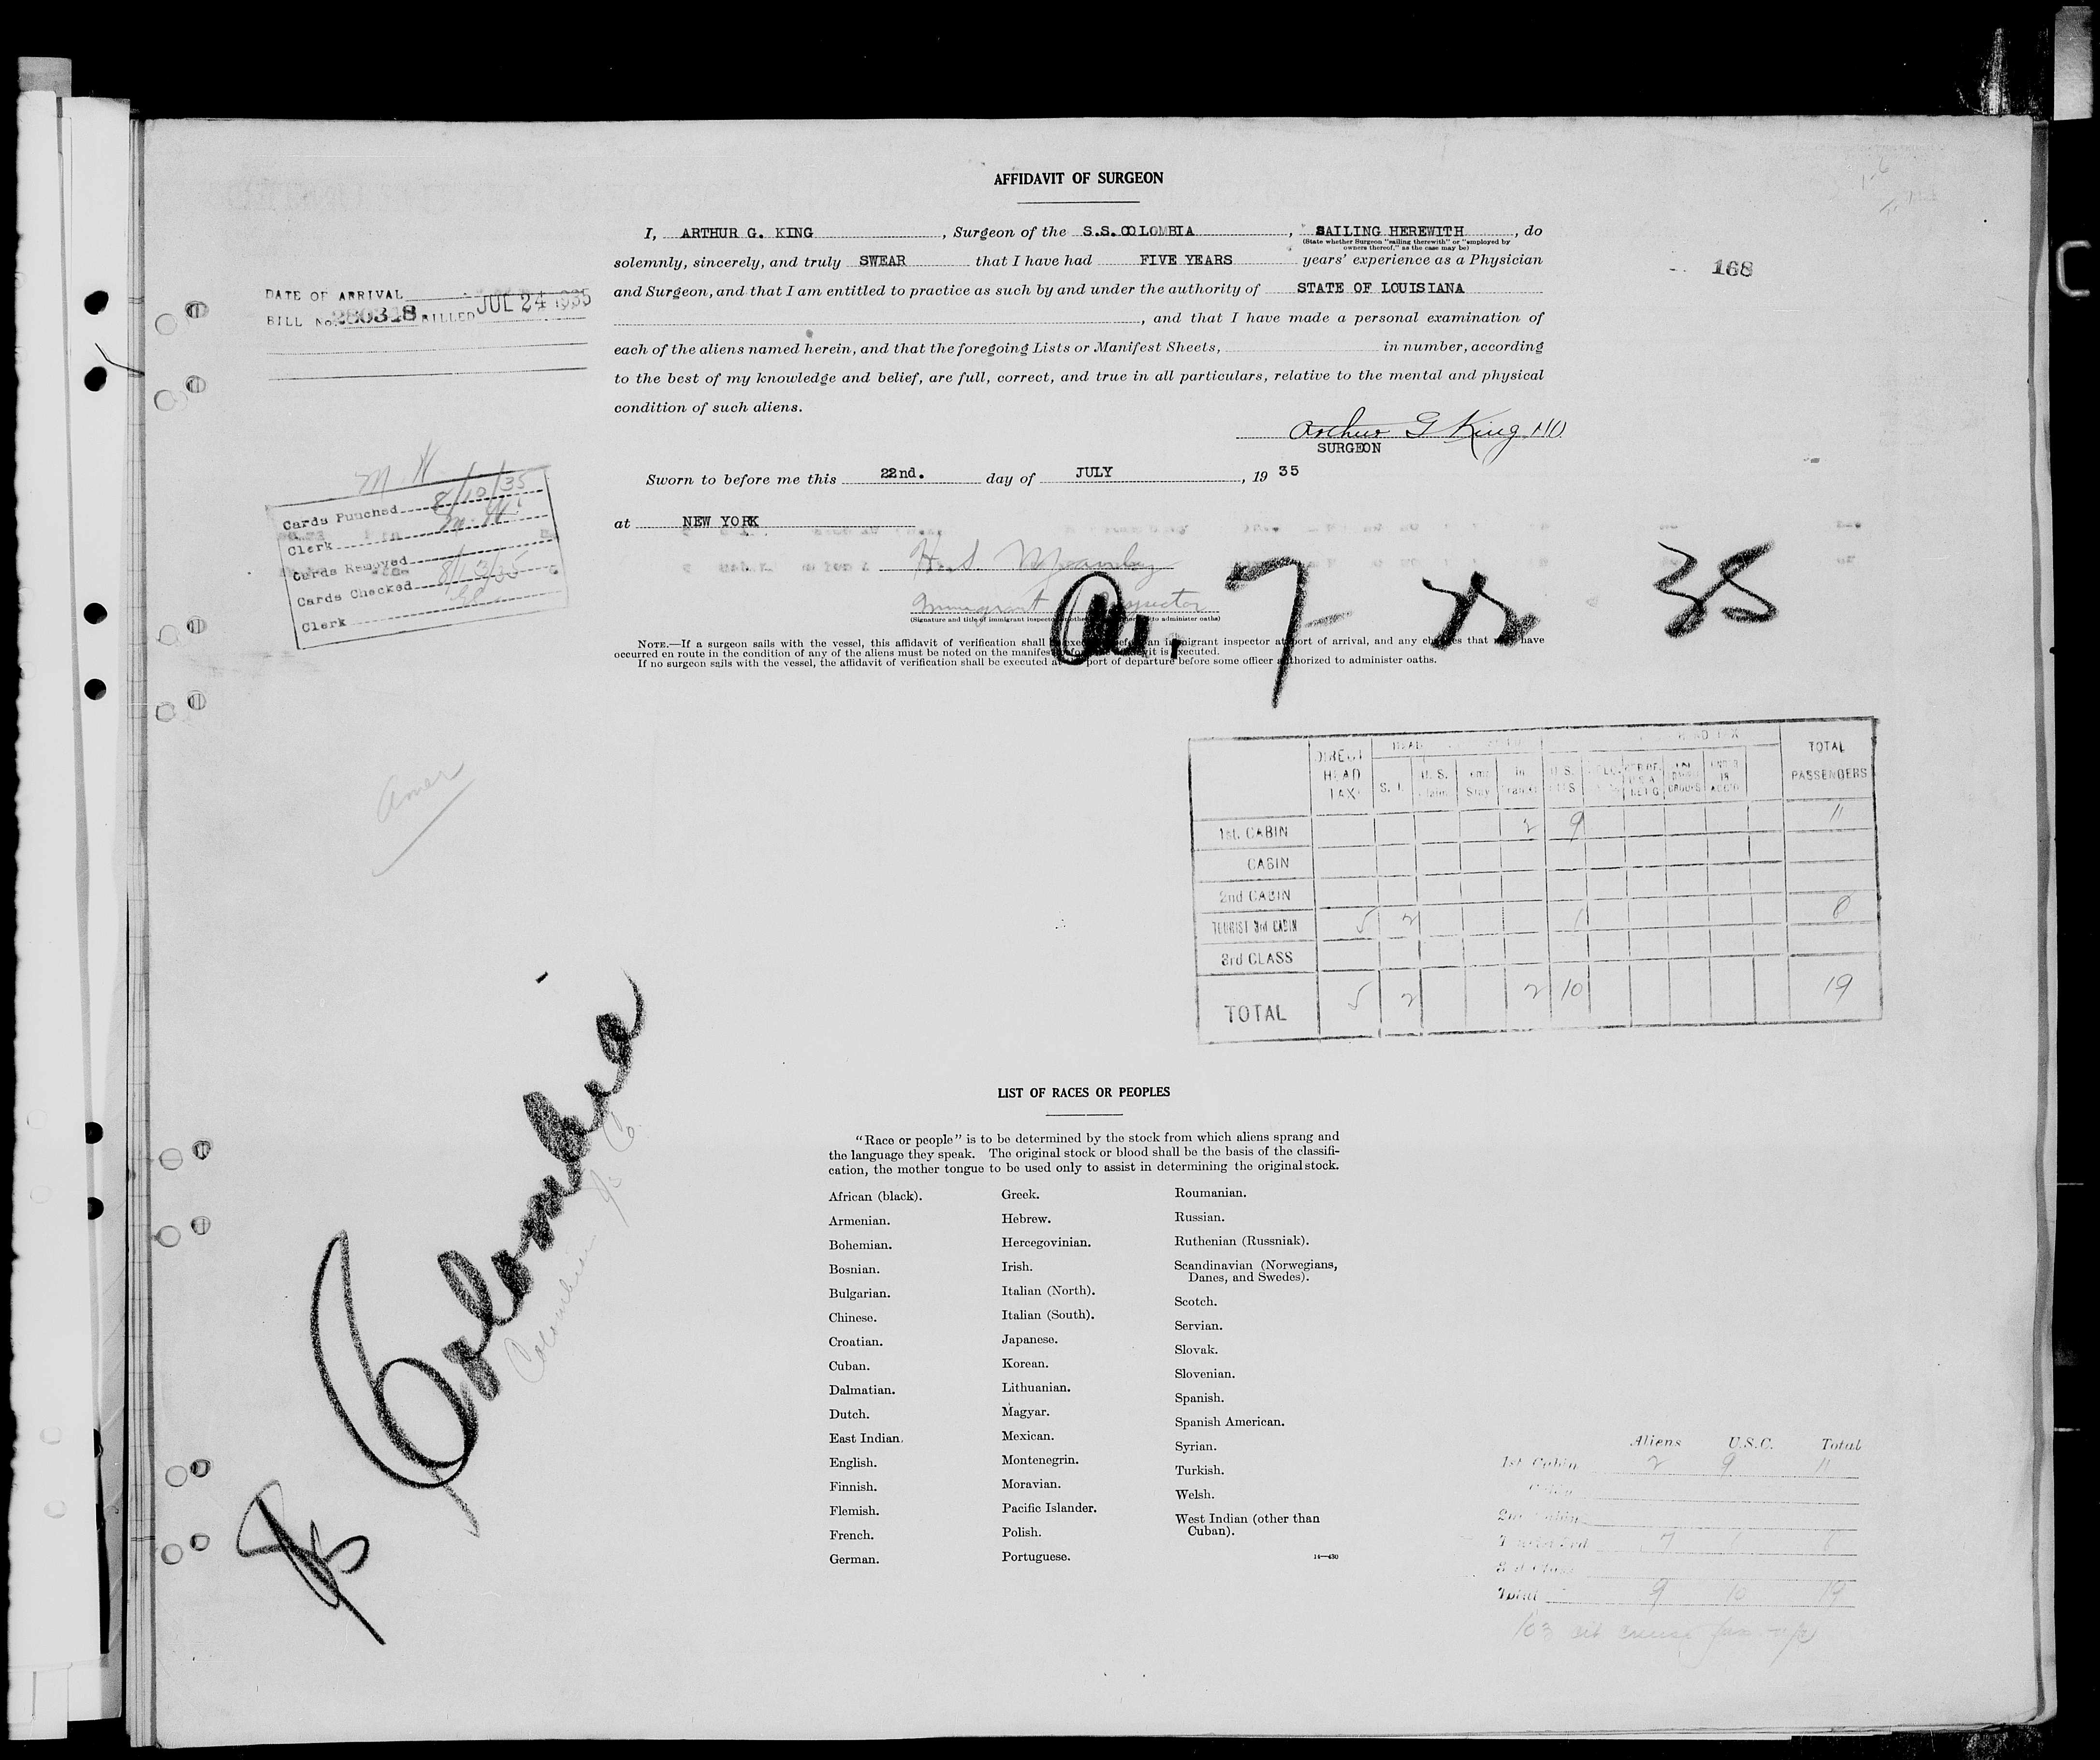 AFFIDAVIT OF SURGEON
I, ARTHUR G. KING, Surgeon of the S.S. COLOMBIA, SAILING HEREWITH, do
(State whether Surgeon "sailing therewith" or "employed by
owners thereof," as the case may be)
solemnly, sincerely, and truly SWEAR that I have had FIVE YEARS years' experience as a Physician
and Surgeon, and that I am entitled to practice as such by and under the authority of STATE OF LOUISIANA
, and that I have made a personal examination of
each of the aliens named herein, and that the foregoing Lists or Manifest Sheets, in number, according
to the best of my knowledge and belief, are full, correct, and true in all particulars, relative to the mental and physical
condition of such aliens.
Arthur G King MD
SURGEON
Sworn to before me this 22nd. day of JULY, 19 35
at NEW YORK
H. S.
Immigrant Inspector
(Signature and title of immigrant inspector to administer oaths)
168
DATE OF ARRIVAL
BILL No. 280318 BILLED JUL 24 1935
M H
Cards Punched 8/10/35
Clerk M. H.
Cards Removed
Cards Checked 8/13/35
Clerk
7 22 35
NOTE.—If a surgeon sails with the vessel, this affidavit of verification shall be executed before an immigrant inspector at port of arrival, and any changes that may have
occurred en route in the condition of any of the aliens must be noted on the manifest before the affidavit is executed.
If no surgeon sails with the vessel, the affidavit of verification shall be executed at port of departure before some officer authorized to administer oaths.
Amer
DIRECT HEAD TAX S. I. U. S. In U. S. TOTAL PASSENGERS
1st. CABIN 2 9 11
CABIN
2nd CABIN
TOURIST 3rd CABIN 5 2 1 8
3rd CLASS
TOTAL 5 2 2 10 19
SS Colombia
Colombian SS Co.
LIST OF RACES OR PEOPLES
"Race or people" is to be determined by the stock from which aliens sprang and
the language they speak. The original stock or blood shall be the basis of the classifi-
cation, the mother tongue to be used only to assist in determining the original stock.
African (black).
Armenian.
Bohemian.
Bosnian.
Bulgarian.
Chinese.
Croatian.
Cuban.
Dalmatian.
Dutch.
East Indian.
English.
Finnish.
Flemish.
French.
German.
Greek.
Hebrew.
Hercegovinian.
Irish.
Italian (North).
Italian (South).
Japanese.
Korean.
Lithuanian.
Magyar.
Mexican.
Montenegrin.
Moravian.
Pacific Islander.
Polish.
Portuguese.
Roumanian.
Russian.
Ruthenian (Russniak).
Scandinavian (Norwegians,
Danes, and Swedes).
Scotch.
Servian.
Slovak.
Slovenian.
Spanish.
Spanish American.
Syrian.
Turkish.
Welsh.
West Indian (other than
Cuban).
14—430
Aliens U.S.C. Total
1st Cabin 2 9 11
Cabin
2nd Cabin
Tourist 3rd 7 1 8
3rd Class
Total 9 10 19
103 cit cruise